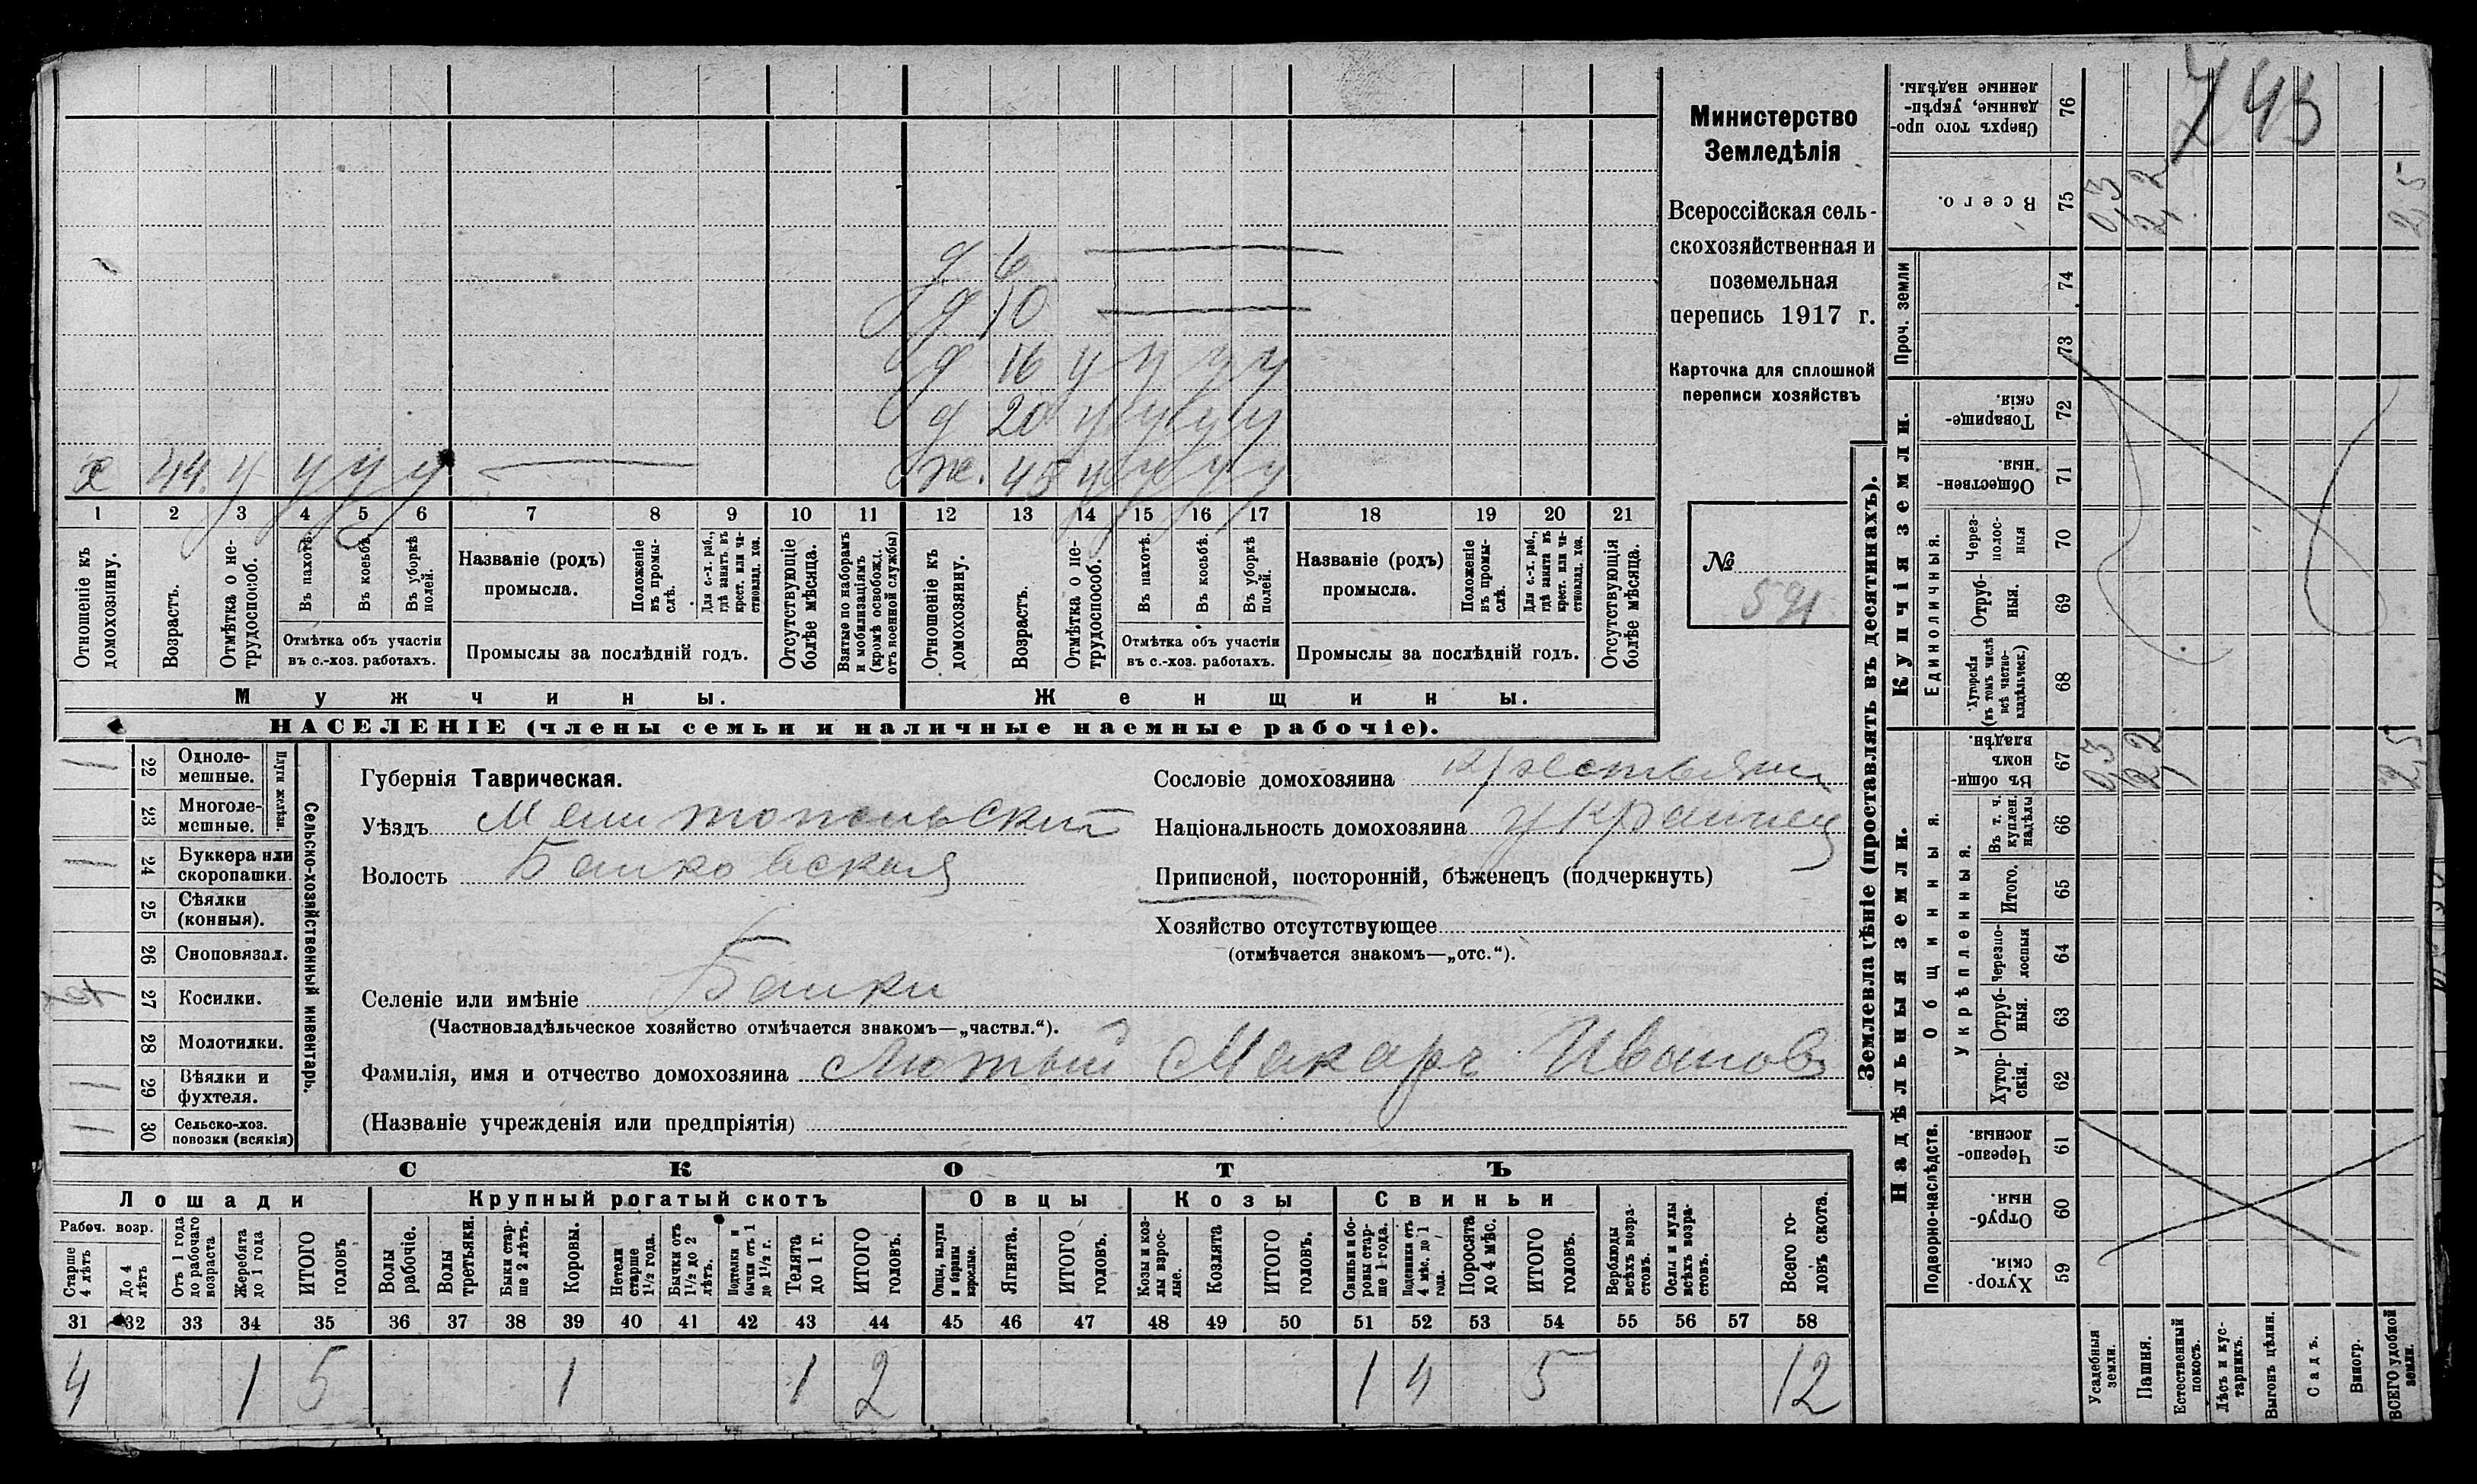 743
Министерство
Земледѣлія
Всероссійская сель-
скохозяйственная и
поземельная
перепись 1917 г.
Карточка для сплошной
переписи хозяйствъ
№
591
д 6
д 10
д 16 у у у у
д 20 у у у у
х 44. у у у у
ж. 45 у у у у
1 2 3 4 5 6 7 8 9 10 11 12 13 14 15 16 17 18 19 20 21
Отношеніе къ домохозяину.
Возрастъ.
Отмѣтка о не-трудоспособ.
Въ пахотѣ.
Въ косьбѣ.
Въ уборкѣ полей.
Отмѣтка объ участіи
въ с.-хоз. работахъ.
Названіе (родъ)
промысла.
Положеніе въ промы-слѣ.
Для с.-х. раб., гдѣ занятъ въ крест. или ча-стновлад. хоз.
Промыслы за послѣдній годъ.
Отсутствующіе болѣе мѣсяца.
Взятые по наборамъ и мобилизаціямъ (кромѣ освобожд. отъ военной службы)
Отношеніе къ домохозяину.
Возрастъ.
Отмѣтка о не-трудоспособ.
Въ пахотѣ.
Въ косьбѣ.
Въ уборкѣ полей.
Отмѣтка объ участіи
въ с.-хоз. работахъ.
Названіе (родъ)
промысла.
Положеніе въ промы-слѣ.
Для с.-х. раб., гдѣ занята въ крест. или ча-стновлад. хоз.
Промыслы за послѣдній годъ.
Отсутствующія болѣе мѣсяца.
Мужчины.
Женщины.
НАСЕЛЕНІЕ (члены семьи и наличные наемные рабочіе).
Сельско-хозяйственный инвентарь.
Плуги желѣзн.
1 22 Одноле-мешные.
23 Многоле-мешные.
1 24 Буккера или скоропашки.
25 Сѣялки (конныя).
26 Сноповязал.
27 Косилки.
28 Молотилки.
1 29 Вѣялки и фухтеля.
1 30 Сельско-хоз. повозки (всякія)
Губернія Таврическая.
Уѣздъ Мелитопольскій
Волость Балковская
Селеніе или имѣніе Балки
(Частновладѣльческое хозяйство отмѣчается знакомъ—„частвл.“).
Фамилія, имя и отчество домохозяина Лютый Макаръ Иванов
(Названіе учрежденія или предпріятія)
Сословіе домохозяина крестьянин
Національность домохозяина украинец
Приписной, посторонній, бѣженецъ (подчеркнуть)
Хозяйство отсутствующее
(отмѣчается знакомъ—„отс.“).
СКОТЪ
Лошади
Крупный рогатый скотъ
Овцы
Козы
Свиньи
Рабоч. возр.
Старше 4 лѣтъ
До 4 лѣтъ
Отъ 1 года до рабочаго возраста
Жеребята до 1 года
ИТОГО головъ
Волы рабочіе.
Волы третьяки.
Быки стар-ше 2 лѣтъ.
Коровы.
Нетели старше 1½ года.
Бычки отъ 1½ до 2 лѣтъ.
Подтелки и бычки отъ 1 до 1½ г.
Телята до 1 г.
ИТОГО головъ.
Овцы, валухи и бараны взрослые.
Ягнята.
ИТОГО головъ.
Козы и коз-лы взрос-лые.
Козлята
ИТОГО головъ.
Свиньи и бо-ровы стар-ше 1 года.
Подсвинки отъ 4 мѣс. до 1 года.
Поросята до 4 мѣс.
ИТОГО головъ.
Верблюды всѣхъ возра-стовъ.
Ослы и мулы всѣхъ возра-стовъ.
Всего го-ловъ скота.
31 32 33 34 35 36 37 38 39 40 41 42 43 44 45 46 47 48 49 50 51 52 53 54 55 56 57 58
4 1 5 1 1 2 1 4 5 12
Землевладѣніе (проставлять въ десятинахъ).
Сверхъ того про-данные, укрѣп-ленные надѣлы. 76
Всего. 75 0,3 2,2 2,5
Проч. земли 74
73
Купчія земли.
Товарище-скія. 72
Обществен-ныя. 71
Единоличныя.
Через-полос-ныя 70
Отруб-ныя. 69
Хуторскія (въ томъ числѣ всѣ частно-владѣльческ.) 68
Надѣльныя земли.
Общинныя.
Въ общин-номъ владѣн. 67 0,3 2,2 2,5
Укрѣпленныя.
Въ т. ч. куплен. надѣлы 66
Итого. 65
Черезпо-лосныя 64
Отруб-ныя. 63
Хутор-скія. 62
Подворно-наслѣдств.
Черезпо-лосныя. 61
Отруб-ныя. 60
Хутор-скія. 59
Усадебныя земли.
Пашня.
Естественный покосъ.
Лѣсъ и кус-тарникъ.
Выгонъ цѣлин.
Садъ.
Виногр.
ВСЕГО удобной земли.